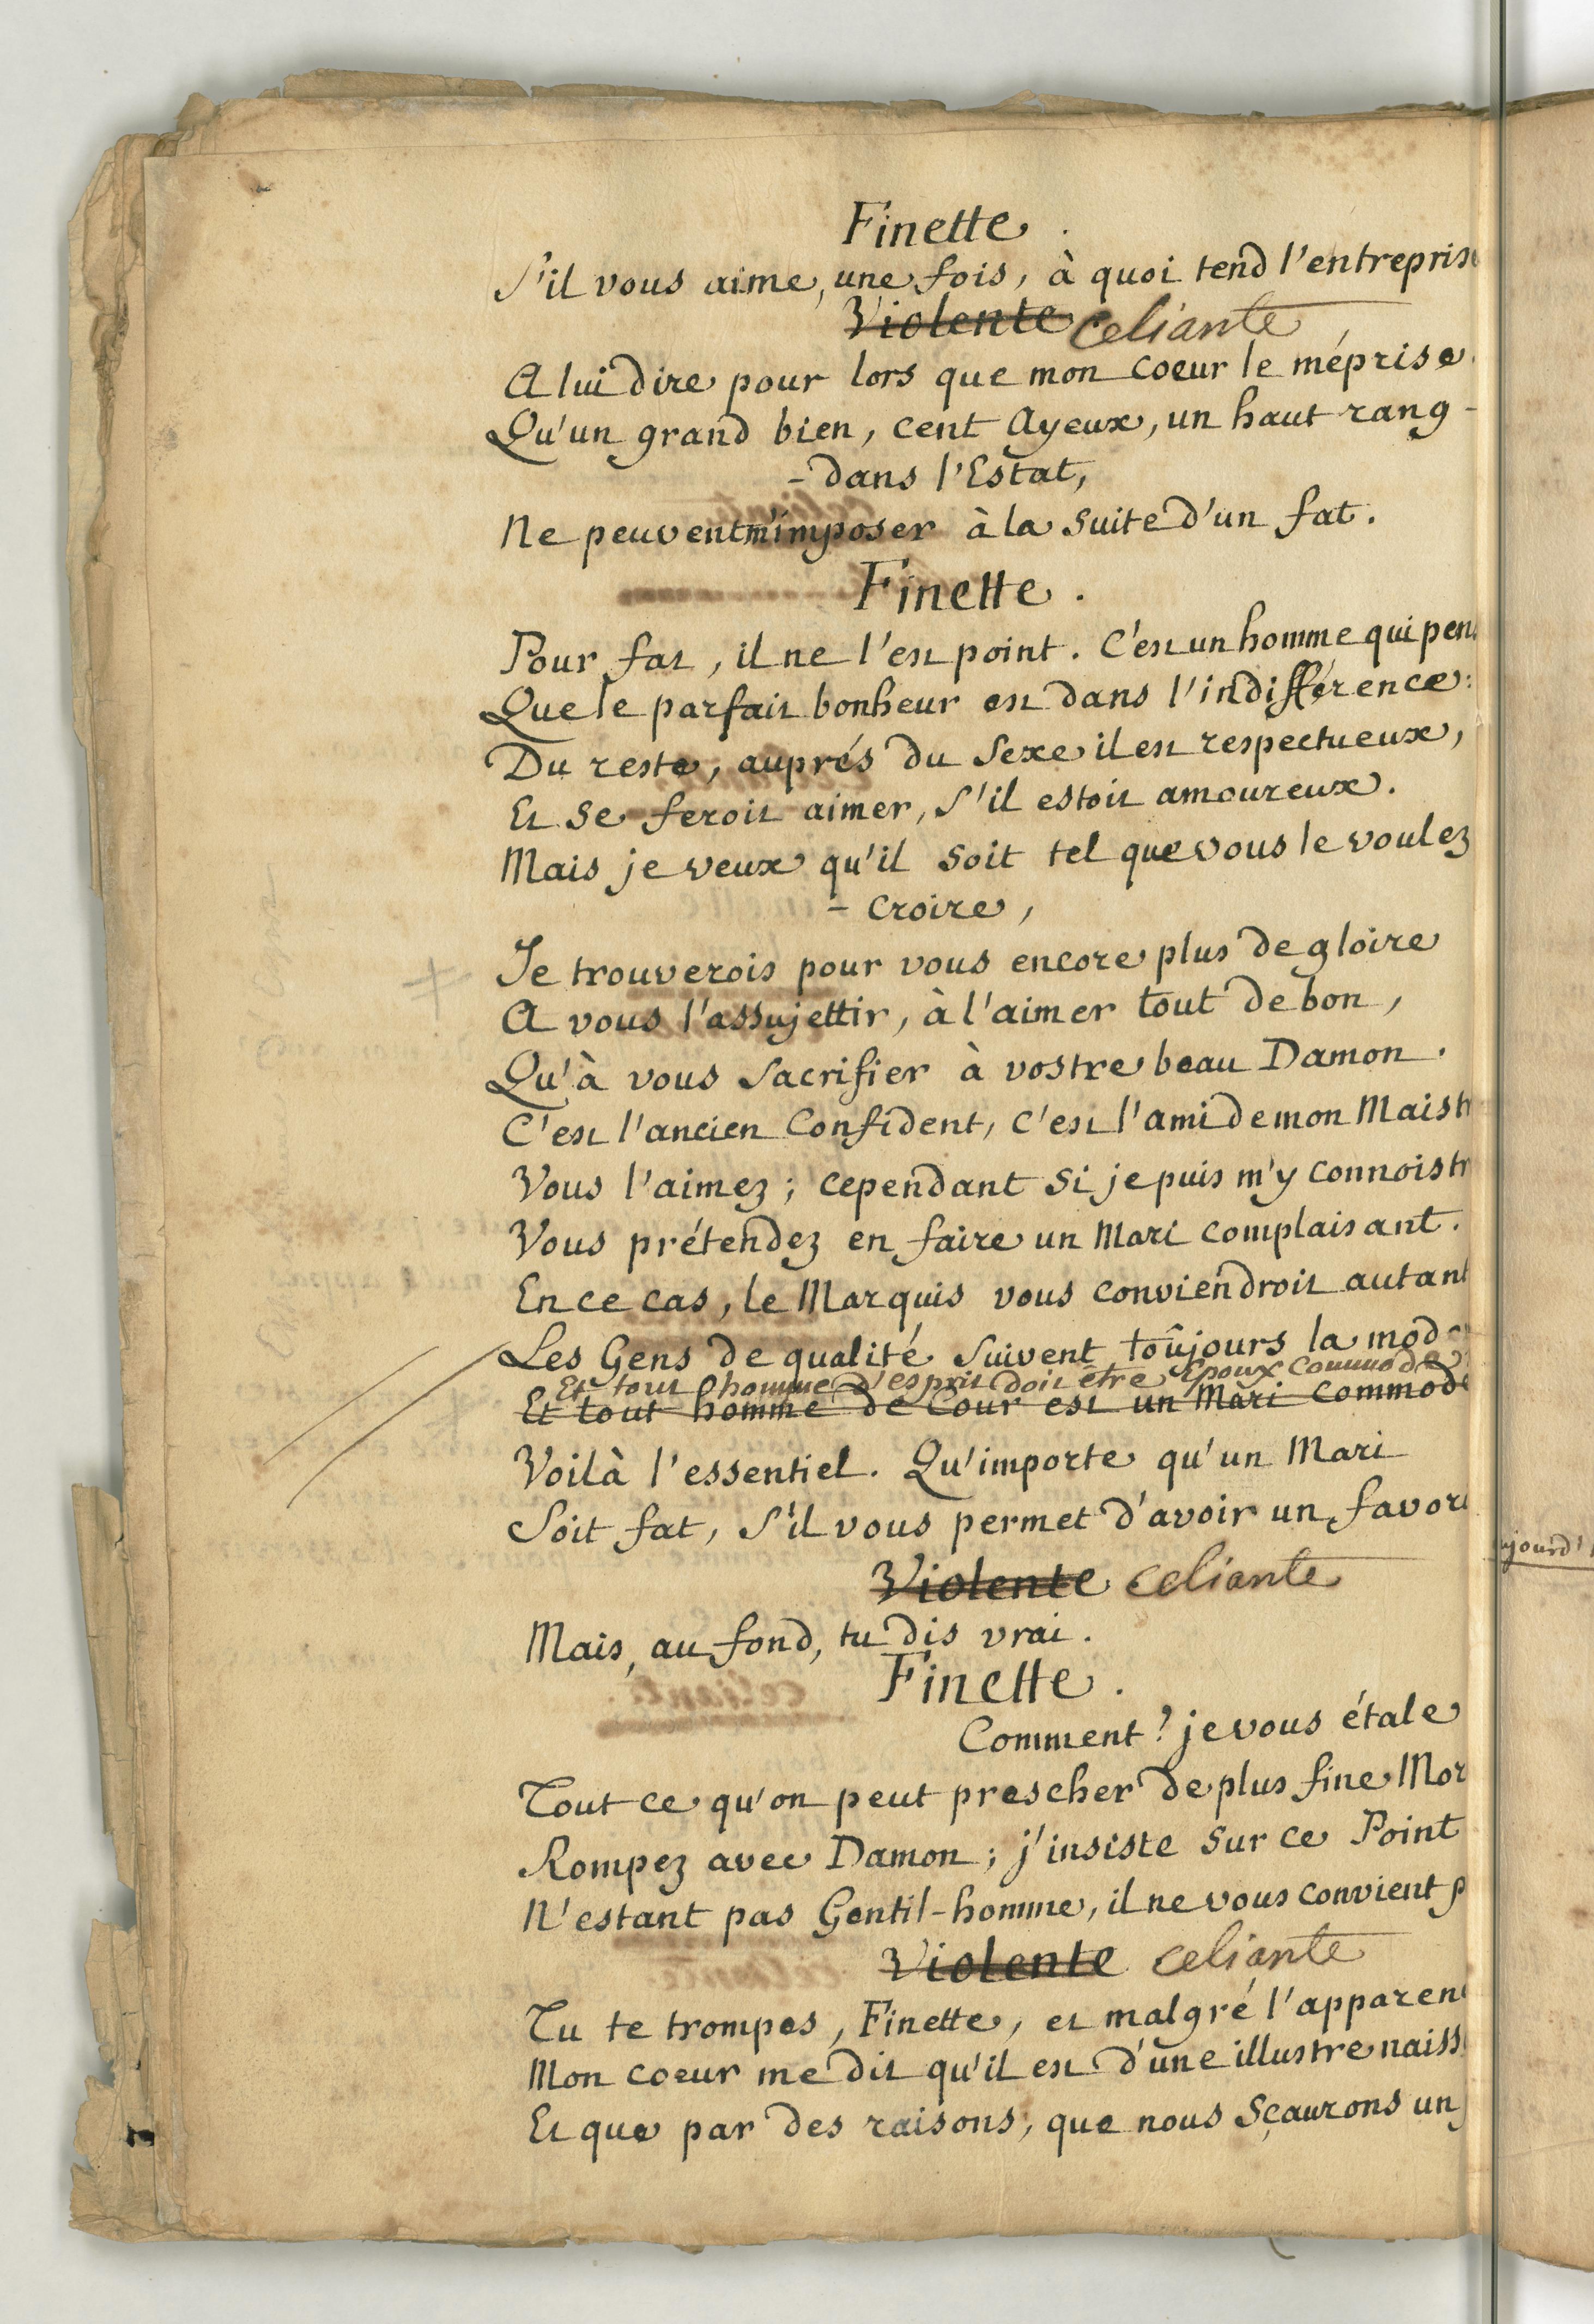 Finette.
S'il vous aime, une fois, à quoi tend l'entrepris
Violente Celiante
A lui dire pour lors que mon coeur le méprise.
Qu'un grand bien, cent Ayeux, un haut rang -
- dans l'Estat,
Ne peuvent m'imposer à la suite d'un fat.
Finette.
Pour fat, il ne l'est point. C'est un homme qui pen
Que le parfait bonheur est dans l'indifférence:
Du reste, auprés du Sexe il est respectueux,
Et se feroit aimer, s'il estoit amoureux.
Mais je veux qu'il soit tel que vous le voulez
- croire,
Je trouverois pour vous encore plus de gloire
A vous l'assujettir, à l'aimer tout de bon,
Qu'à vous sacrifier à vostre beau Damon.
C'est l'ancien Confident, c'est l'ami de mon Maist
Vous l'aimez; cependant si je puis m'y connoistr
Vous prétendez en faire un Mari complaisant.
En ce cas, le Marquis vous conviendroit autant
Les Gens de qualité suivent toûjours la mode
Et tout homme d'esprit doit être Epoux commode
Et tout homme de Cour est un Mari commode
Voilà l'essentiel. Qu'importe qu'un Mari
Soit fat, s'il vous permet d'avoir un favori
Violente Celiante
Mais, au fond, tu dis vrai.
Finette.
Comment? je vous étale
Tout ce qu'on peut prescher de plus fine Mor
Rompez avec Damon; j'insiste sur ce Point
N'estant pas Gentil-homme, il ne vous convient p
Violente Celiante
Tu te trompes, Finette, et malgré l'apparen
Mon coeur me dit qu'il est d'une illustre naiss
Et que par des raisons, que nous sçaurons un j
ujourd'h